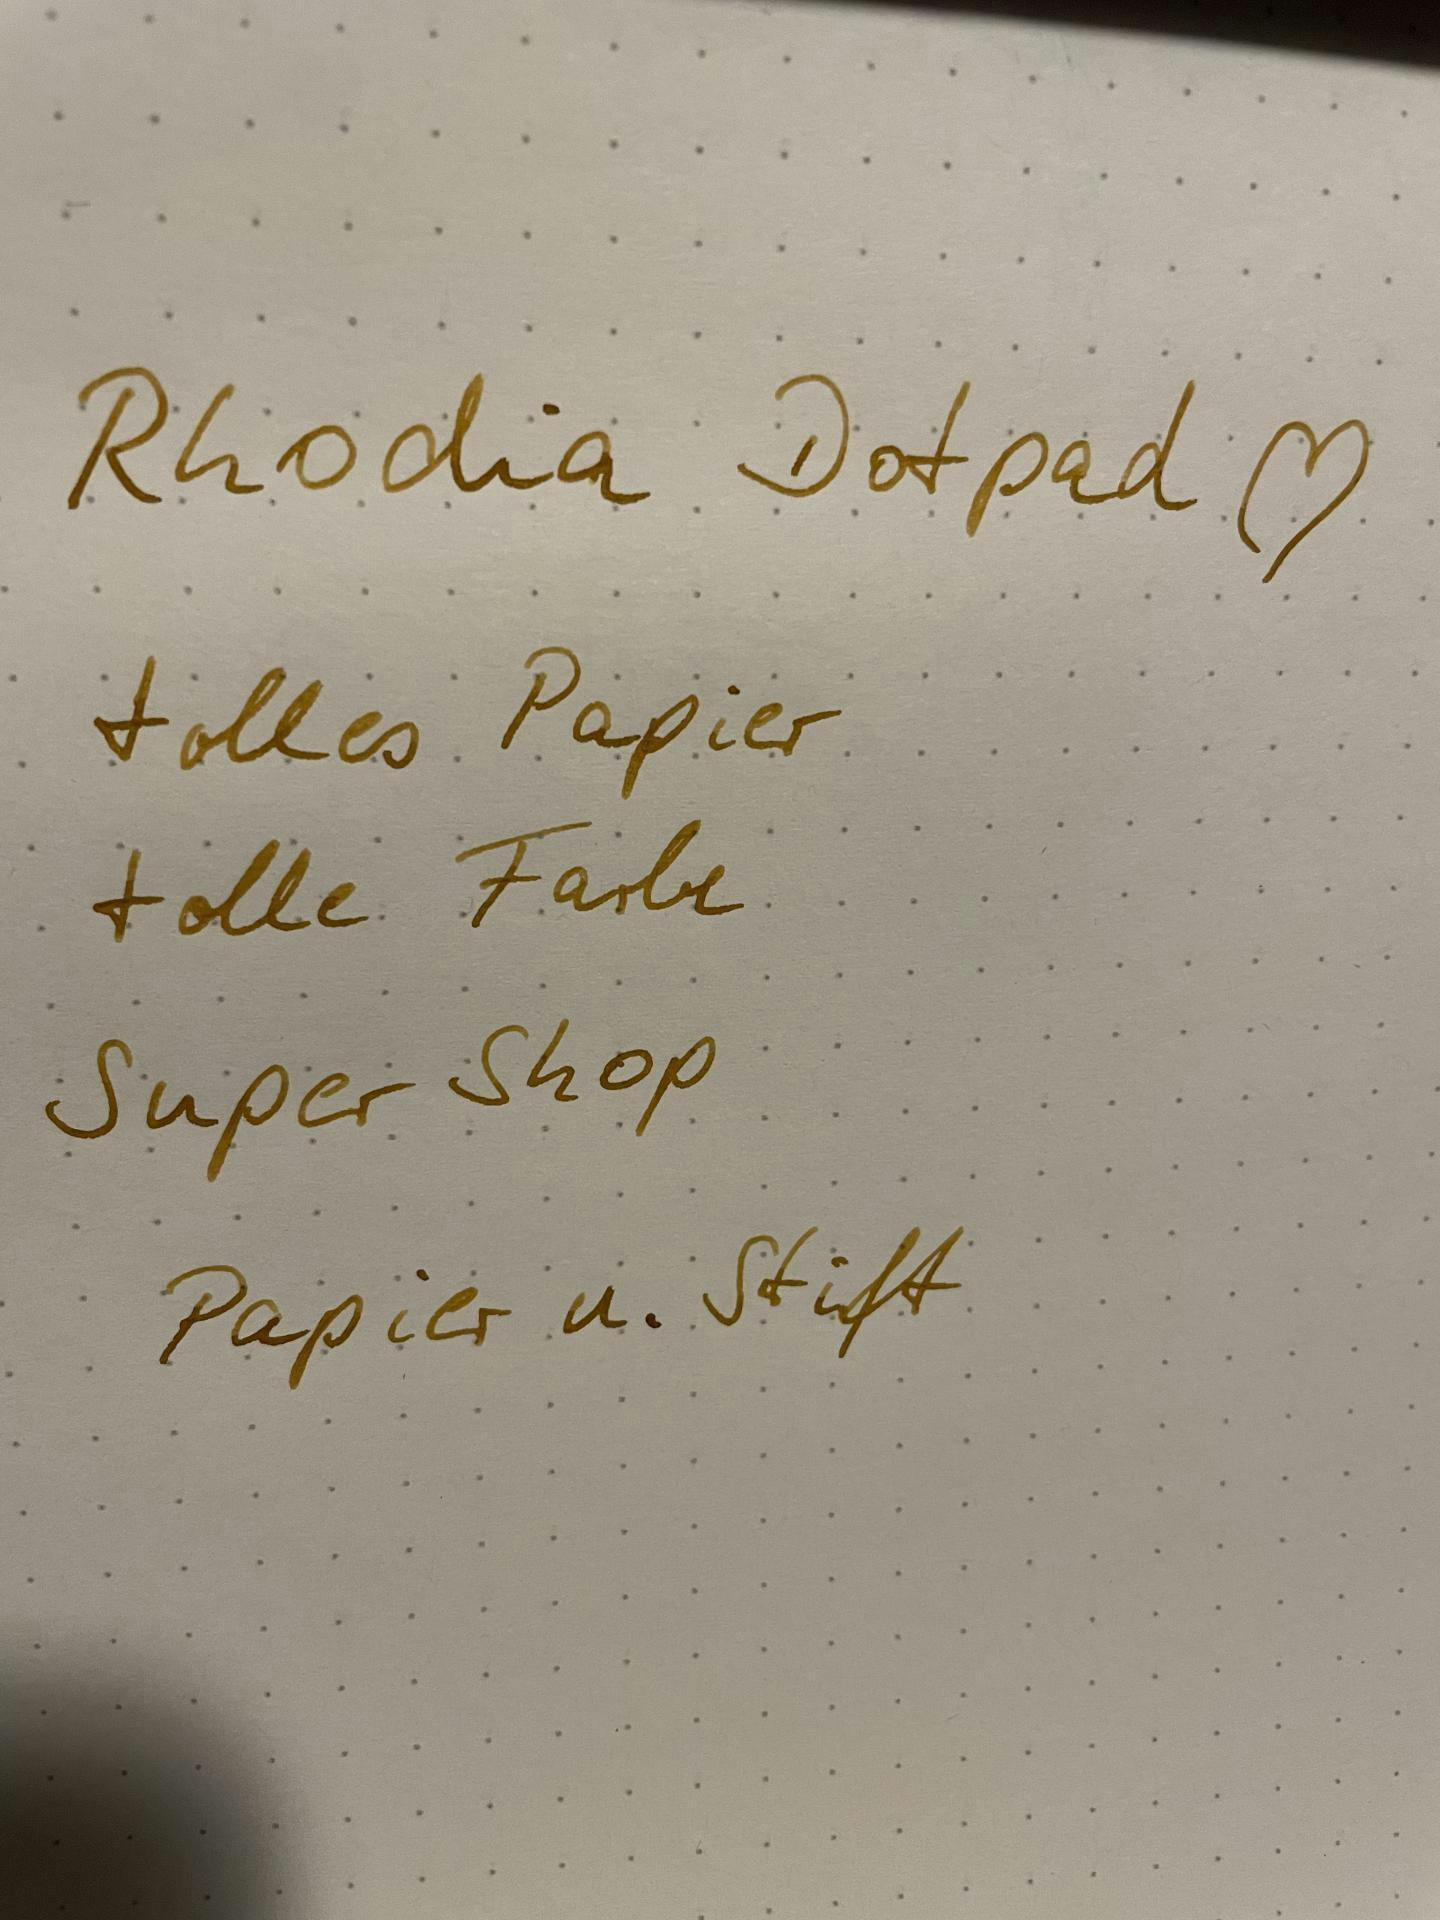 Rhodia Dotpad ♡
tolles Papier
tolle Farbe
Super Shop
Papier u. Stift